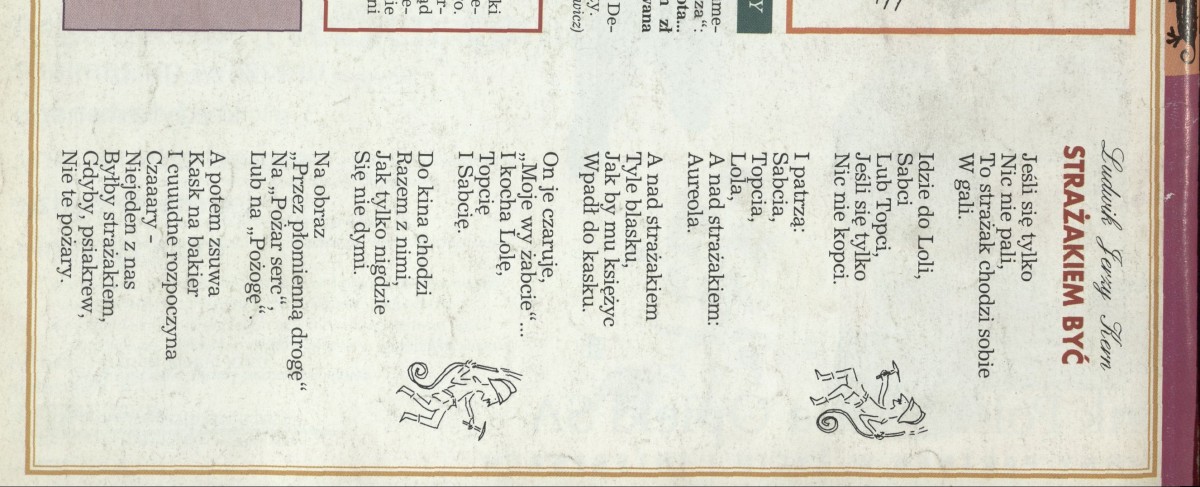 Ludwik Jerzy Kern
STRAŻAKIEM BYĆ
Jeśli się tylko
Nic nie pali,
To strażak chodzi sobie
W gali.
Idzie do Loli,
Sabci
Lub Topci,
Jeśli się tylko
Nic nie kopci.
I patrzą:
Sabcia,
Topcia,
Lola,
A nad strażakiem:
Aureola.
A nad strażakiem
Tyle blasku,
Jak by mu księżyc
Wpadł do kasku.
On je czaruje,
„Moje wy żabcie“...
I kocha Lolę,
Topcię
I Sabcię.
Do kina chodzi
Razem z nimi,
Jak tylko nigdzie
Się nie dymi.
Na obraz
„Przez płomienną drogę“
Na „Pożar serc“,
Lub na „Pożogę“.
A potem zsuwa
Kask na bakier
I cuuudne rozpoczyna
Czaaary -
Niejeden z nas
Byłby strażakiem,
Gdyby, psiakrew,
Nie te pożary.